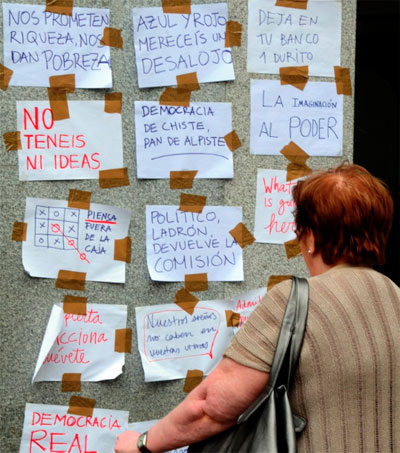 NOS PROMETEN
RIQUEZA, NOS
DAN POBREZA
AZUL Y ROJO
MERECEIS UN
DESALOJO
DEJA EN
TU BANCO
1 DURITO
NO
TENEIS
NI IDEAS
DEMOCRACIA
DE CHISTE,
PAN DE ALPISTE
LA IMAGINACIÓN
AL PODER
PIENSA
FUERA
DE LA
CAJA
POLITICO,
LADRÓN,
DEVUELVE LA
COMISIÓN
What
is
here
Nuestros sueños
no caben en
vuestras urnas
DEMOCRACIA
REAL